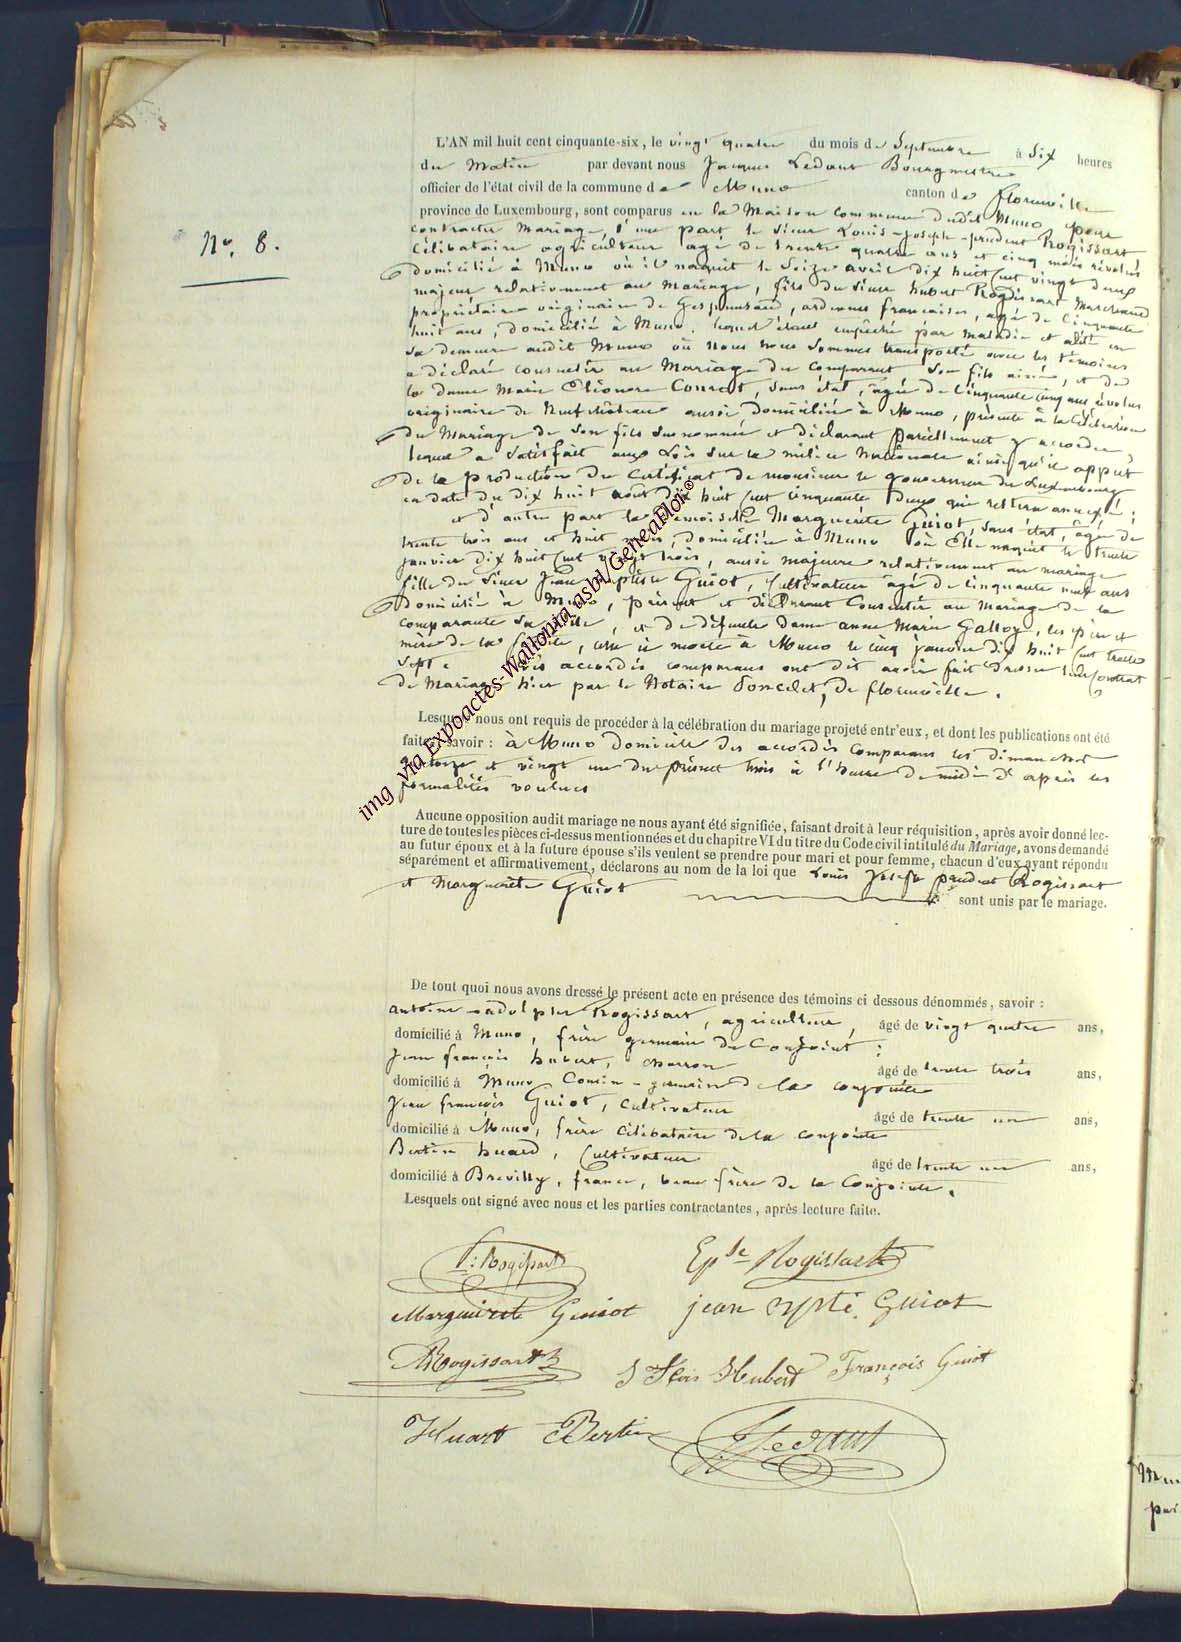 L'AN mil huit cent cinquante-six, le vingt quatre du mois de Septembre à Six heures
du Matin par devant nous Jacques Ledant Bourgmestre
officier de l'état civil de la commune de Muno canton de florenville
province de Luxembourg, sont comparus en la Maison commune dudit Muno, pour
N.° 8.
contracter Mariage, d'une part le Sieur Louis-Joseph-prudent Rogissart,
Célibataire agriculteur agé de trente quatre ans et cinq mois révolus
domicilié à Muno où il naquit le Seize avril dix huit cent vingt deux
majeur relativement au Mariage, fils du Sieur hubert Rogissart Marchand
propriétaire originaire de Gespunsard, ardennes françaises, agé de Cinquante
huit ans, domicilié à Muno, lequel étant empêché par maladie et alité en
Sa demeure audit Muno où nous nous Sommes transporté avec les témoins
a déclaré consentir au Mariage du comparant Son fils ainé, et de
la dame Marie Eléonore Conrot, Sans état, agée de Cinquante cinq ans révolus
originaire de Neufchateau aussi domiciliée à Muno, présente à la Célébration
du Mariage de Son fils Susnommé et déclarant pareillement y accorder,
lequel a Satisfait aux Lois Sur la milice Nationale ainsi qu'il appert
de la production du Certificat de monsieur le gouverneur du Luxembourg
en date du dix huit août dix huit cent cinquante deux qui restera annexé ;
et d'autre part la Demoiselle Marguerite Guiot, Sans état, âgée de
trente trois ans et huit mois, domiciliée à Muno où Elle naquit le trente
janvier dix huit cent vingt trois, aussi majeure relativement au mariage
fille du Sieur Jean Baptiste Guiot, Cultivateur agé de cinquante neuf ans
Domicilié à Muno, présent et déclarant Consentir au Mariage de la
comparante Sa fille, et de défunte dame anne Marie Galloy, les père et
mère de la fille, celle ci morte à Muno le cinq janvier dix huit cent trente
Sept. Les accordés comparans ont dit avoir fait dresser leur Contrat
de Mariage hier par le Notaire Poncelet, de florenville.
Lesquels nous ont requis de procéder à la célébration du mariage projeté entr'eux, et dont les publications ont été
faites, savoir : à Muno domicile des accordés comparans les dimanches
quatorze et vingt un du présent mois à l'heure de midi d'après les
formalités voulues
Aucune opposition audit mariage ne nous ayant été signifiée, faisant droit à leur réquisition, après avoir donné lec-
ture de toutes les pièces ci-dessus mentionnées et du chapitre VI du titre du Code civil intitulé du Mariage, avons demandé
au futur époux et à la future épouse s'ils veulent se prendre pour mari et pour femme, chacun d'eux ayant répondu
séparément et affirmativement, déclarons au nom de la loi que Louis Joseph prudent Rogissart
et Marguerite Guiot sont unis par le mariage.
De tout quoi nous avons dressé le présent acte en présence des témoins ci dessous dénommés, savoir :
antoine-adolphe Rogissart, agriculteur, âgé de vingt quatre ans,
domicilié à Muno, frère germain du Conjoint ;
Jean françois hubert, charron âgé de trente trois ans,
domicilié à Muno Cousin-germain de la conjointe
Jean françois Guiot, Cultivateur âgé de trente un ans,
domicilié à Muno, frère célibataire de la conjointe
Bertin huard, Cultivateur âgé de trente un ans,
domicilié à Brevilly, france, beau frère de la Conjointe.
Lesquels ont signé avec nous et les parties contractantes, après lecture faite.
P: Rogissart Epse Rogissart
Marguirete Guiot jean Bpste Guiot
ARogissart J Fcois Hubert François Guiot
Huart Bertin J Ledant
img via Expoactes-Wallonia asbl/GeneaFlor©